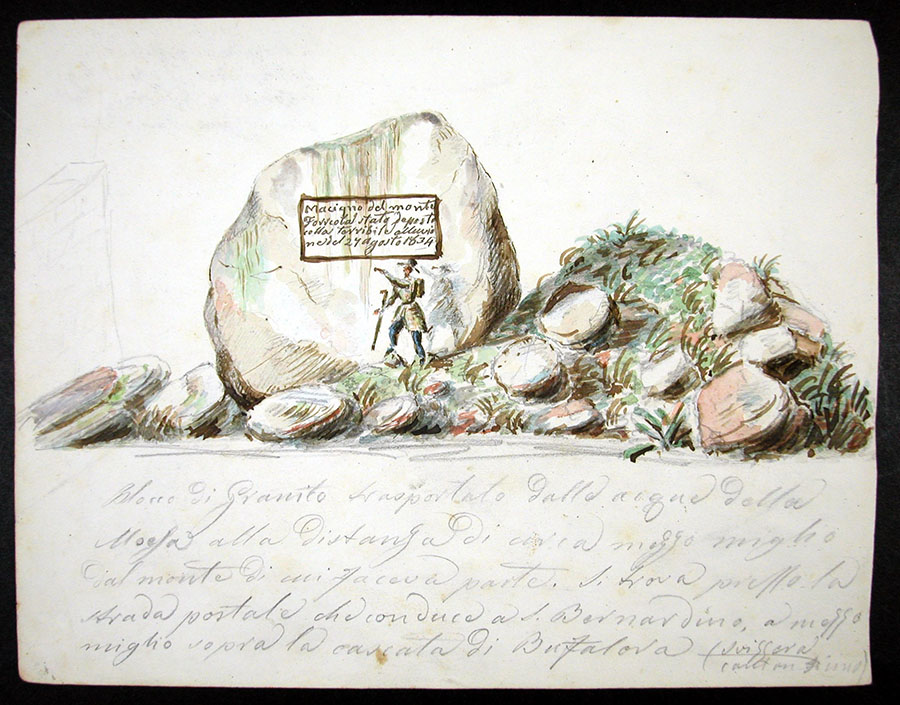 Macigno del monte
Forcola stato deposto
colla terribile alluvio
ne del 27 agosto 1834
Blocco di Granito trasportato dalle acque della
Moesa alla distanza di circa mezzo miglio
dal monte di cui faceva parte. Si trova presso la
strada postale che conduce a S. Bernardino, a mezzo
miglio sopra la cascata di Buffalora (Svizzera